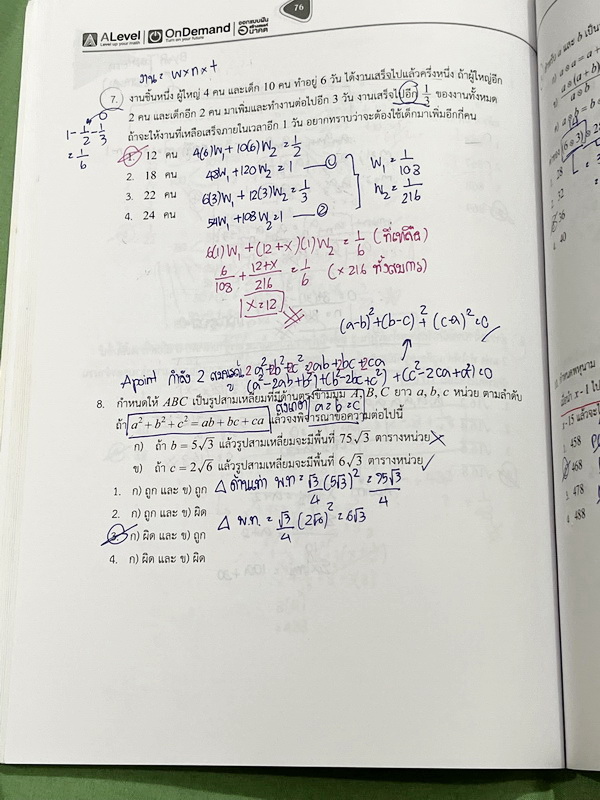 76
ALevel Level up your math OnDemand Turn on your future ออกแบบฝัน สร้างสรรค์ อนาคต
งาน = w × n × t
7. งานชิ้นหนึ่ง ผู้ใหญ่ 4 คน และเด็ก 10 คน ทำอยู่ 6 วัน ได้งานเสร็จไปแล้วครึ่งหนึ่ง ถ้าผู้ใหญ่อีก
2 คน และเด็กอีก 2 คน มาเพิ่มและทำงานต่อไปอีก 3 วัน งานเสร็จไปอีก 1/3 ของงานทั้งหมด
ถ้าจะให้งานที่เหลือเสร็จภายในเวลาอีก 1 วัน อยากทราบว่าจะต้องใช้เด็กมาเพิ่มอีกกี่คน
1 - 1/2 - 1/3
= 1/6
1. 12 คน
2. 18 คน
3. 22 คน
4. 24 คน
4(6)W₁ + 10(6)W₂ = 1/2
48W₁ + 120W₂ = 1 ①
6(3)W₁ + 12(3)W₂ = 1/3
54W₁ + 108W₂ = 1 ②
W₁ = 1/108
W₂ = 1/216
6(1)W₁ + (12+x)(1)W₂ = 1/6 (ที่เหลือ)
6/108 + 12+x/216 = 1/6 (× 216 ทั้งสมการ)
x = 12
(a-b)² + (b-c)² + (c-a)² = 0
Apoint กำลัง 2 2a²+2b²+2c² = 2ab+2bc+2ca
(a²-2ab+b²) + (b²-2bc+c²) + (c²-2ca+a²) = 0
8. กำหนดให้ ABC เป็นรูปสามเหลี่ยมที่มีด้านตรงข้ามมุม A, B, C ยาว a, b, c หน่วย ตามลำดับ
a = b = c
ถ้า a² + b² + c² = ab + bc + ca แล้วจงพิจารณาข้อความต่อไปนี้
ก) ถ้า b = 5√3 แล้วรูปสามเหลี่ยมจะมีพื้นที่ 75√3 ตารางหน่วย
ข) ถ้า c = 2√6 แล้วรูปสามเหลี่ยมจะมีพื้นที่ 6√3 ตารางหน่วย
1. ก) ถูก และ ข) ถูก
2. ก) ถูก และ ข) ผิด
3. ก) ผิด และ ข) ถูก
4. ก) ผิด และ ข) ผิด
Δ ด้านเท่า พ.ท = √3/4 (5√3)² = 75√3/4
Δ พ.ท. = √3/4 (2√6)² = 6√3
1. 28
2. 32
3. 36
4. 40
1. 458
2. 468
3. 478
4. 488